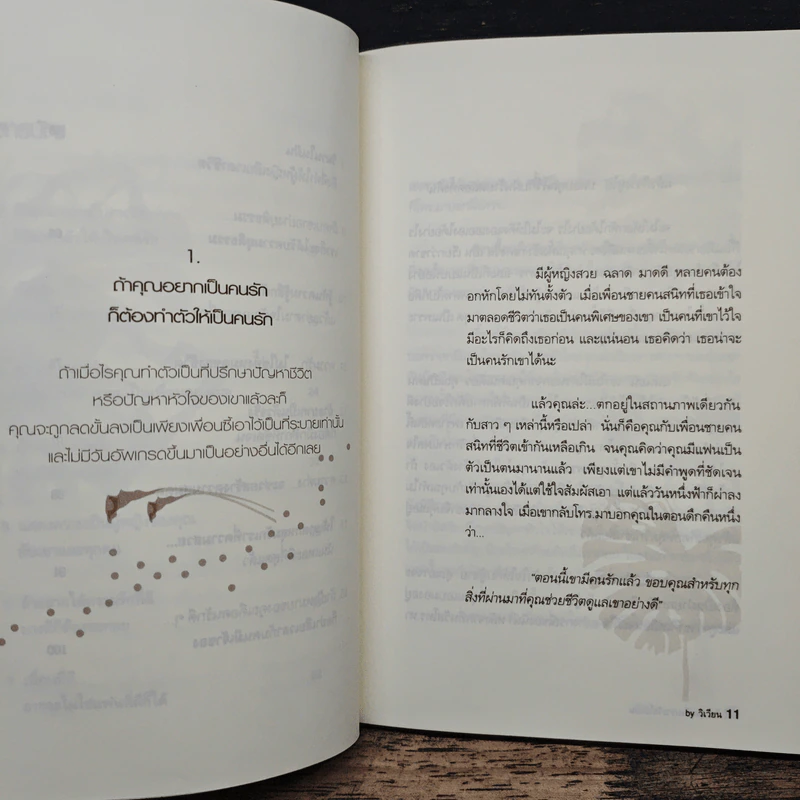 1.
ถ้าคุณอยากเป็นคนรัก
ก็ต้องทำตัวให้เป็นคนรัก
ถ้าเมื่อไรคุณทำตัวเป็นที่ปรึกษาปัญหาชีวิต
หรือปัญหาหัวใจของเขาแล้วละก็
คุณจะถูกลดขั้นลงเป็นเพียงเพื่อนซี้เอาไว้เป็นที่ระบายเท่านั้น
และไม่มีวันอัพเกรดขึ้นมาเป็นอย่างอื่นได้อีกเลย
มีผู้หญิงสวย ฉลาด มาดดี หลายคนต้อง
อกหักโดยไม่ทันตั้งตัว เมื่อเพื่อนชายคนสนิทที่เธอเข้าใจ
มาตลอดชีวิตว่าเธอเป็นคนพิเศษของเขา เป็นคนที่เขาไว้ใจ
มีอะไรก็คิดถึงเธอก่อน และแน่นอน เธอคิดว่า เธอน่าจะ
เป็นคนรักเขาได้นะ
แล้วคุณล่ะ...ตกอยู่ในสถานภาพเดียวกัน
กับสาว ๆ เหล่านี้หรือเปล่า นั่นก็คือคุณกับเพื่อนชายคน
สนิทที่ชีวิตเข้ากันเหลือเกิน จนคุณคิดว่าคุณมีแฟนเป็น
ตัวเป็นตนมานานแล้ว เพียงแต่เขาไม่มีคำพูดที่ชัดเจน
เท่านั้นเองได้แต่ใช้ใจสัมผัสเอา แต่แล้ววันหนึ่งฟ้าก็ผ่าลง
มากลางใจ เมื่อเขากลับโทร.มาบอกคุณในตอนดึกคืนหนึ่ง
ว่า...
"ตอนนี้เขามีคนรักแล้ว ขอบคุณสำหรับทุก
สิ่งที่ผ่านมาที่คุณช่วยชีวิตดูแลเขาอย่างดี"
by วิเวียน 11